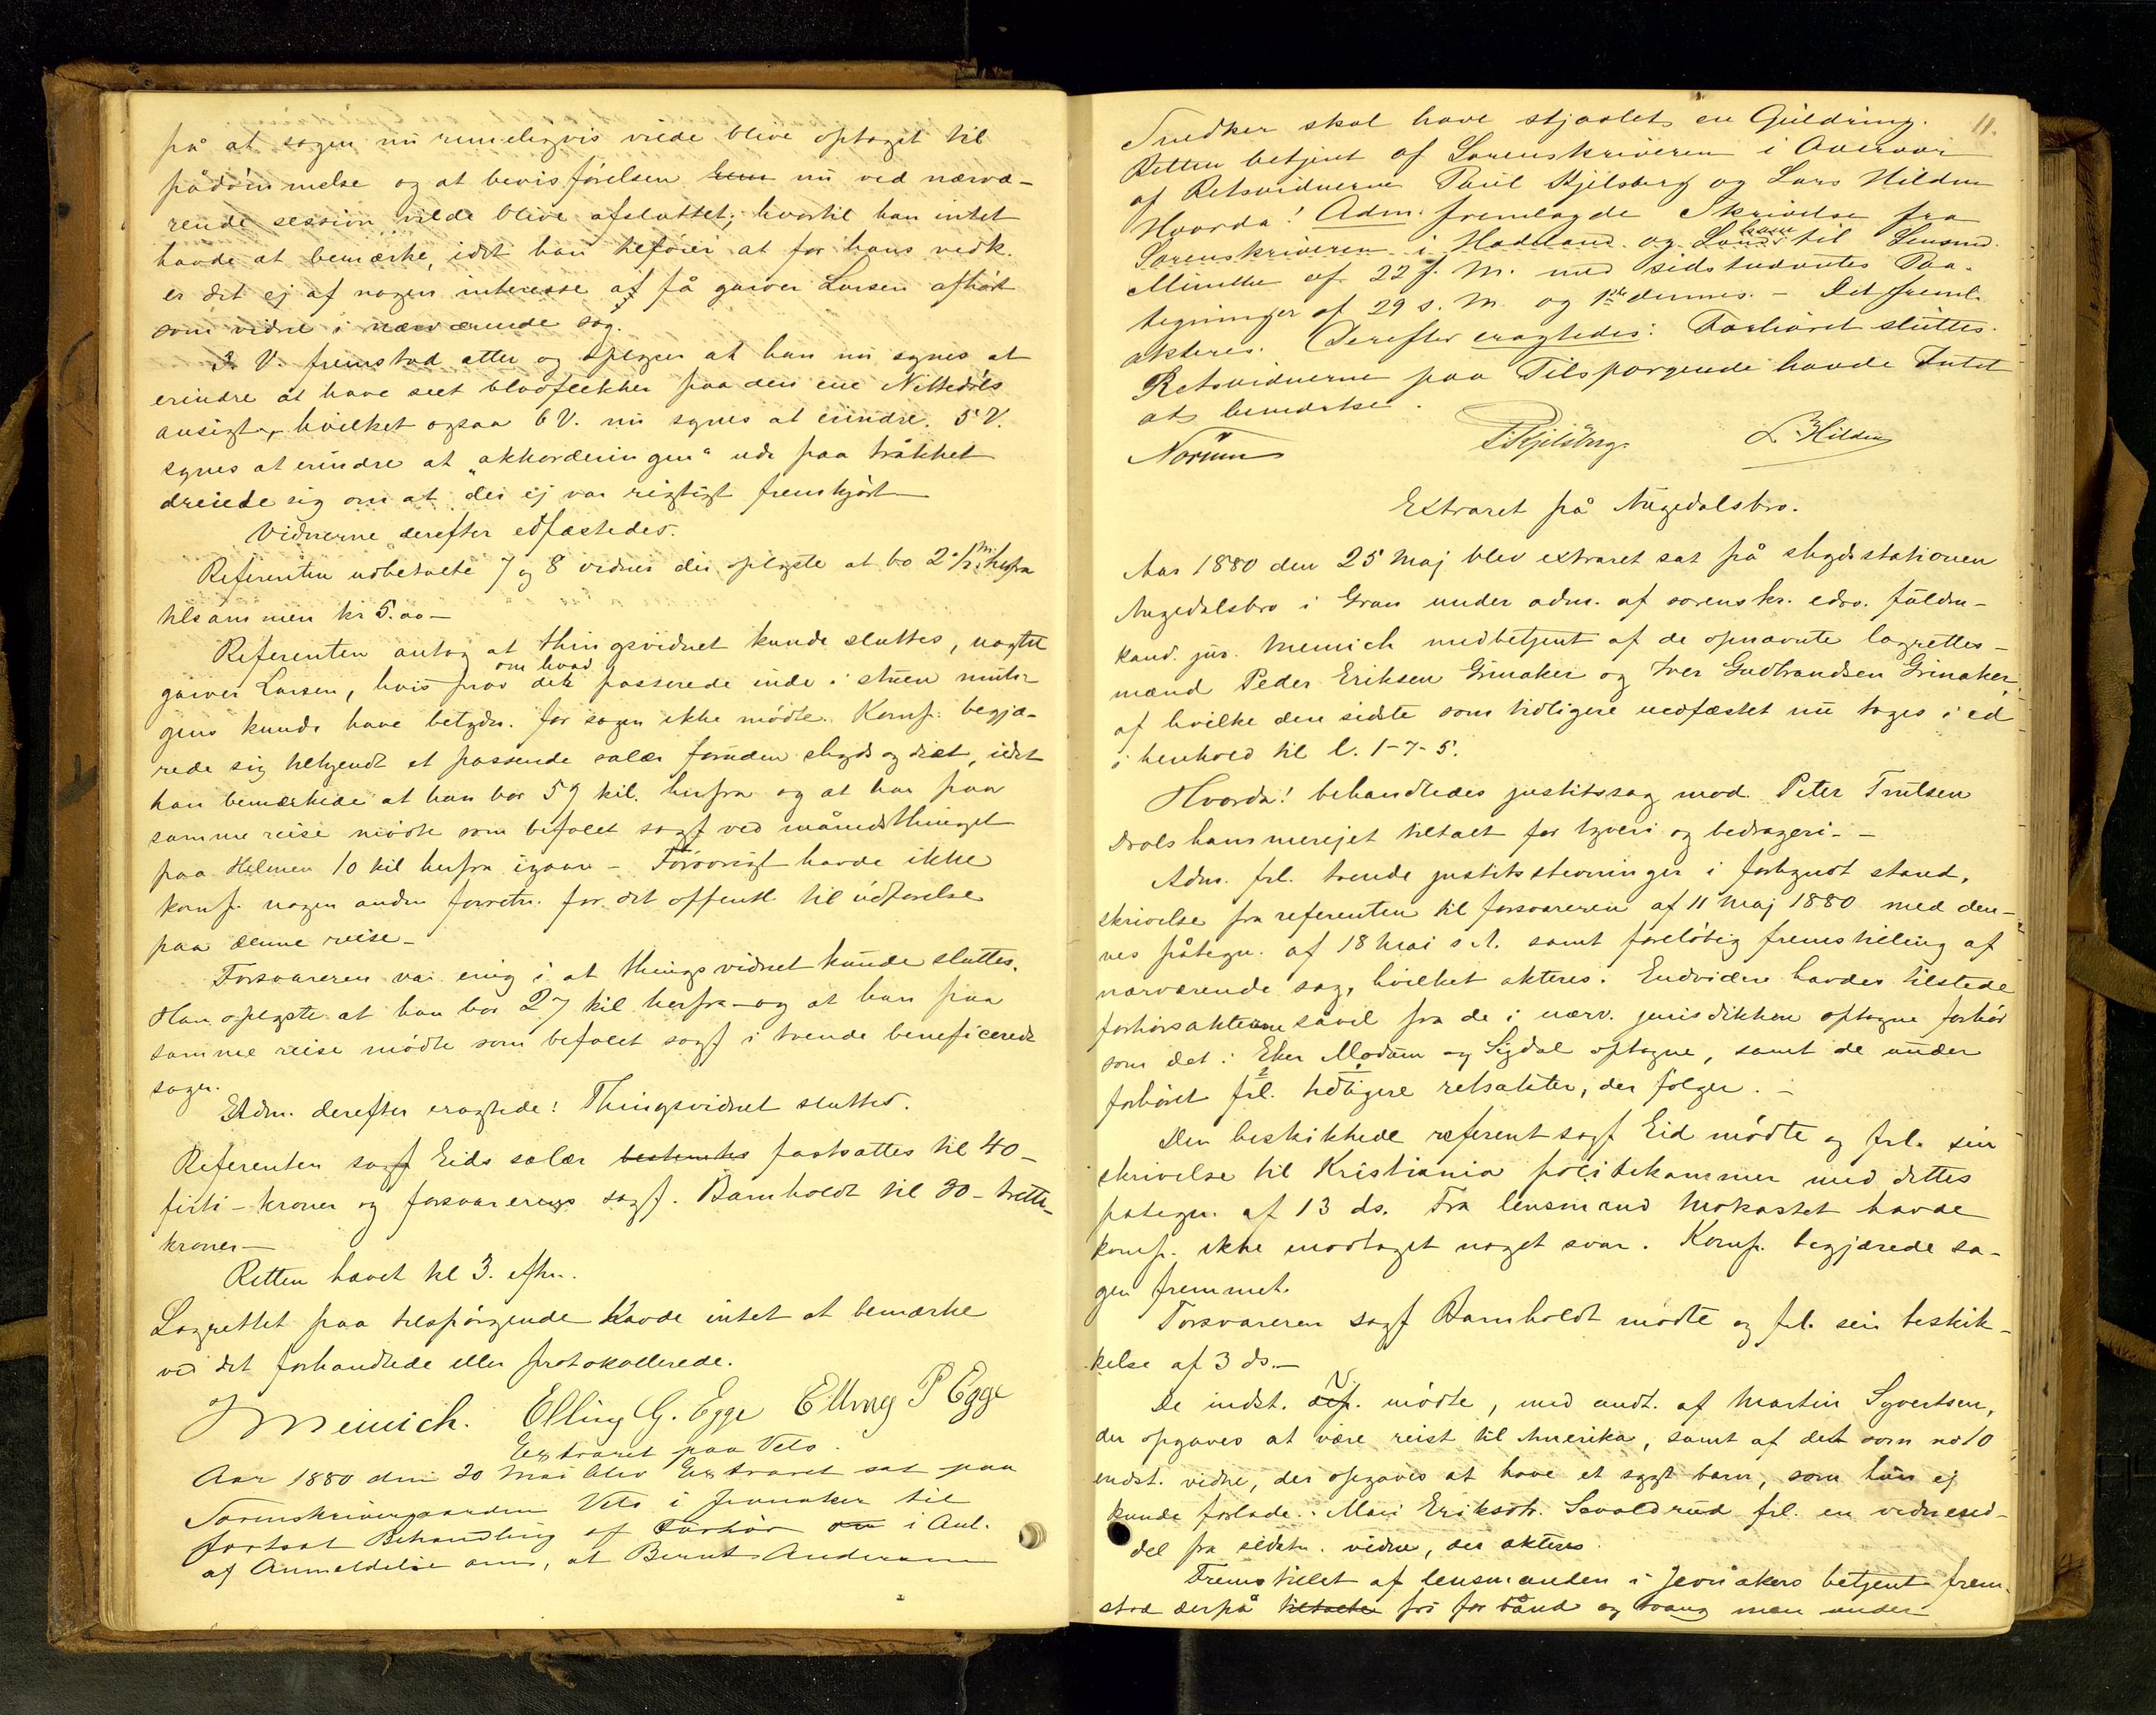 på at sagen nu rimeligvis vilde blive optaget til
pådömmelse og at bevisförelsen nu ved nærvæ-
rende session vilde blive afsluttet; hvortil han intet
havde at bemærke, idet han tilföier at for hans vedk.
er det ej af nogen interesse at få garver Larsen afhört
som vidne i nærværende sag.
3 V. fremstod atter og oplyser at han nu synes at
erindre at have seet blodflekker paa den ene Nittedöls
ansigt, hvilket ogsaa 6 V. nu synes at erindre. 5 V.
synes at erindre at "akkorderingen" ude paa tråkket
dreiede sig om at der ej var rigtigt fremkjört
Vidnerne derefter edfæstedes.
Referenten udbetalte 7 og 8 vidner der oplyste at bo 2 1/2 m. herfra
tilsammen kr 5.00 -
Referenten antog at thingsvidnet kunde sluttes, uagtet
garver Larsen, hvis prov om hvad der passerede inde i stuen muli-
gens kunde have betydn. for sagen ikke mödte. Komp. begjæ-
rede sig tilkjendt et passende salær foruden skyds og diæt, idet
han bemærkede at han bor 59 kil. herfra og at han paa
samme reise mödte som befalet sagf ved månedsthinget
paa Helmen 10 kil herfra igaar - Forövrigt havde ikke
komp. nogen anden forretn. for det offentl til udförelse
paa denne reise -
Forsvareren var enig i at thingsvidnet kunde sluttes.
Han oplyste at han bor 27 kil herfra - og at han paa
samme reise mödte som befalet sagf i tvende beneficerede
sager.
Adm. derefter eragtede: Thingsvidnet sluttes.
Referenten sagf Eids salær bestemtes fastsattes til 40 -
firti - kroner og forsvarerens sagf. Bamholdt til 30 - tretti -
kroner -
Retten hævet kl 3. efterm.
Lagrettet paa tilspörgende havde intet at bemærke
ved det forhandlede eller protokollerede.
Meinich. Elling G. Egge Elling P Egge
Extraret paa Velo.
Aar 1880 den 20 Mai blev Extraret sat paa
Sorenskrivergaarden Velo i Jevnaker til
fortsat Behandling af Forhör i Anl.
af Anmeldelse om, at Bernt Andersen
11.
Snedker skal have stjaalet en Guldring.
Retten betjent af Sorenskriveren i Overvær
af Retsvidnerne Paul Kjelsberg og Lars Hilden
Hvorda! Adm. fremlagde Skrivelse fra
Sorenskriveren i Hadeland og Land til Lensmd.
af 22 f. M. med sidstnævntes Paa-
tegninger af 29 s. M. og 1ste dennes. - Det freml.
akteres. Derefter eragtedes: Forhöret sluttes.
Retsvidnerne paa Tilspørgende havde Intet
at bemærke.
Norum P. Kjelsberg. L. Hilden
Extraret på Augedalsbro.
Aar 1880 den 25 Maj blev extraret sat på skydsstationen
Augedalsbro i Gran under adm. af sorenskr. edsv. fuldm-
kand. jur. Meinich medbetjent af de opnævnte lagrettes-
mænd Peder Eriksen Grinaker og Iver Gudbrandsen Grinaker
af hvilke den sidste som tidligere uedfæstet nu toges i ed
i henhold til l. 1-7-5.
Hvorda! behandledes justitssag mod Peter Trulsen
Drolshammerejet tiltalt for tyveri og bedrageri - -
Adm. frl. tvende justitsstevninger i forkyndt stand,
skrivelse fra referenten til forsvareren af 11 Maj 1880 med den-
nes påtegn. af 18 Mai s A. samt foreløbig fremstilling af
nærværende sag, hvilket akteres. Endvidere havdes tilstede
forhørsakterne såvel fra de i nærv. jurisdiktion optagne forhör
som det i Eker Modum og Sigdal optagne, samt de under
forhöret frl. 2 tidligere retsakter, der fölger. -
Den beskikkede referent sagf Eid mödte og frl. sin
skrivelse til Kristiania politikammer med dettes
påtegn. af 13 ds. Fra lensmand Mokastet havde
komp. ikke modtaget noget svar. Komp. begjærede sa-
gen fremmet.
Forsvareren sagf Bamholdt mödte og frl. sin beskik-
kelse af 3 ds. -
De indst. V. mödte, med undt. af Martin Syvertsen,
der opgaves at være reist til Amerika, samt af det som no 10
indst. vidne, der opgaves at have et sygt barn, som hun ej
kunde forlade. Mari Eriksdtr. Sevaldrud frl. en vidnesed-
del fra sidstn. vidne, der akteres.
Fremstillet af lensmanden i Jevnakers betjent frem-
stod derpå tiltalte fri for bånd og tvang men under